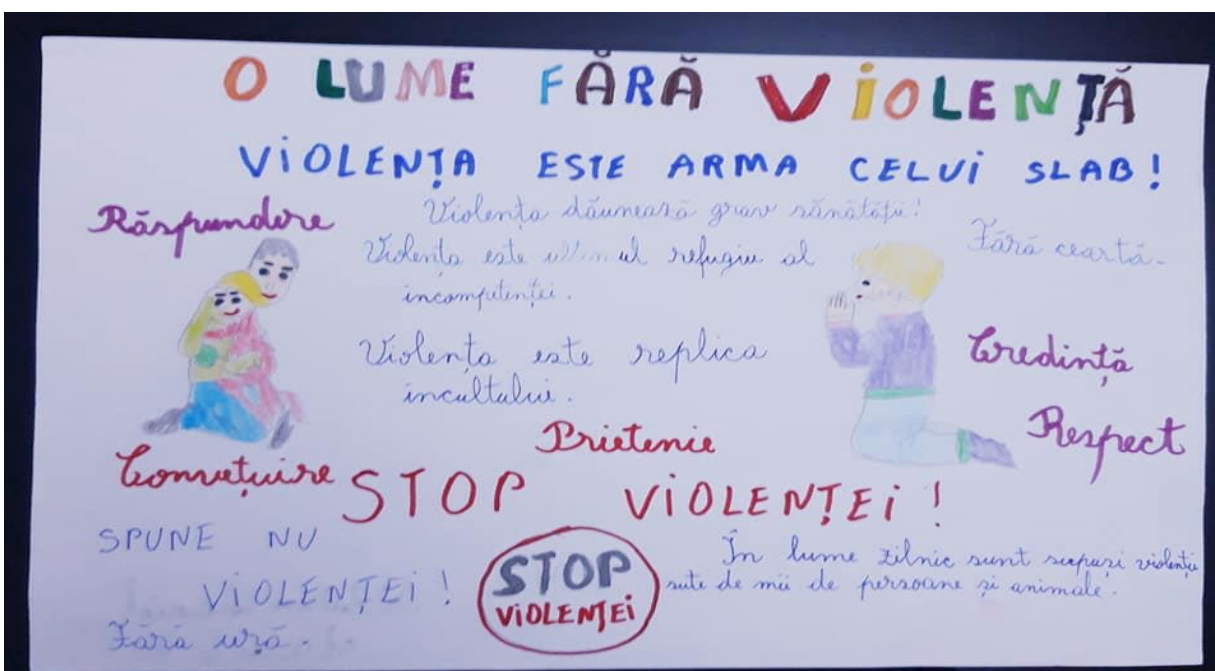 O LUME FĂRĂ VIOLENȚĂ
VIOLENȚA ESTE ARMA CELUI SLAB!
Răspundere
Violența dăunează grav sănătății!
Violența este ultimul refugiu al
incompetenței.
Fără ceartă.
Violența este replica
incultului.
Credință
Prietenie
Respect
Conviețuire
STOP VIOLENȚEI!
SPUNE NU
VIOLENȚEI!
Fără ură.
STOP
VIOLENȚEI
În lume zilnic sunt supuși violenței
sute de mii de persoane și animale.